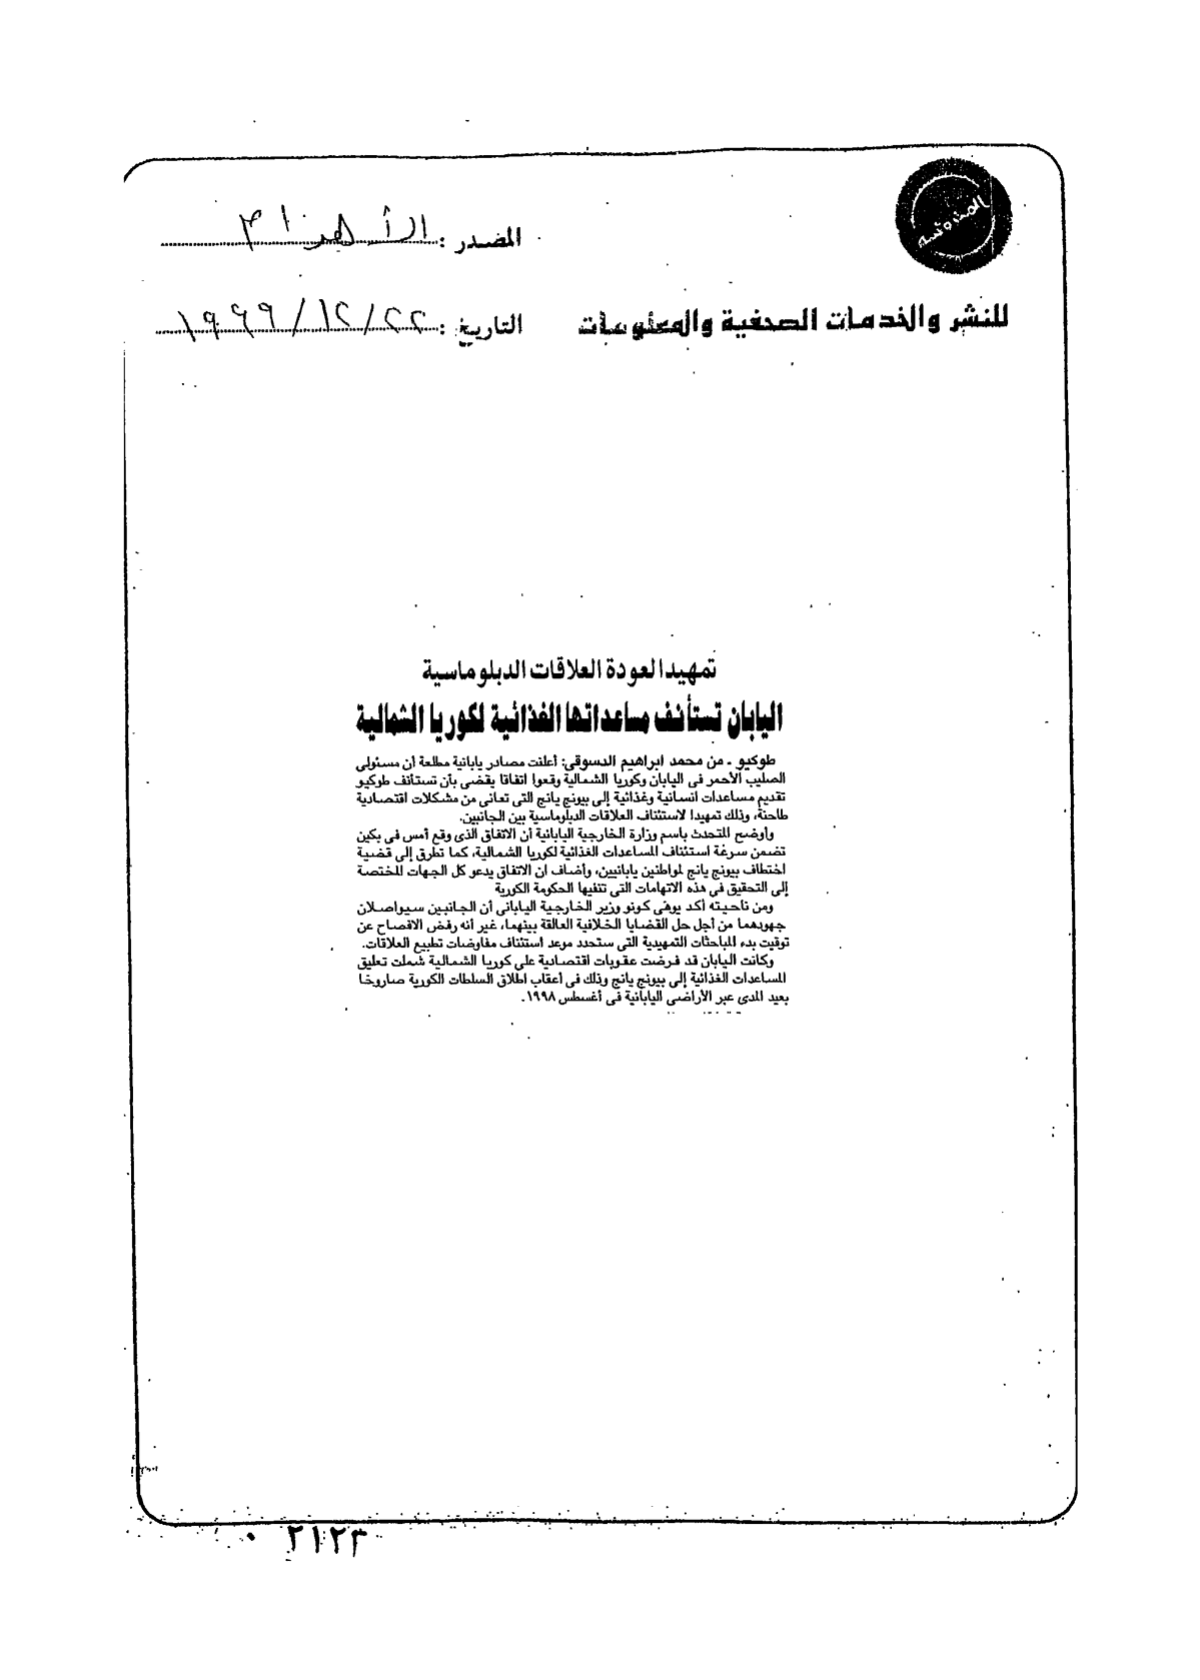 المصدر : الأهرام
للنشر والخدمات الصحفية والمعلومات
التاريخ : ٢٢/١٢/١٩٩٩
تمهيدا لعودة العلاقات الدبلوماسية
اليابان تستأنف مساعداتها الغذائية لكوريا الشمالية
طوكيو ـ من محمد ابراهيم الدسوقى: أعلنت مصادر يابانية مطلعة أن مسئولى
الصليب الأحمر فى اليابان وكوريا الشمالية وقعوا اتفاقا يقضى بأن تستأنف طوكيو
تقديم مساعدات انسانية وغذائية إلى بيونج يانج التى تعانى من مشكلات اقتصادية
طاحنة، وذلك تمهيدا لاستئناف العلاقات الدبلوماسية بين الجانبين.
وأوضح المتحدث باسم وزارة الخارجية اليابانية أن الاتفاق الذى وقع أمس فى بكين
تضمن سرعة استئناف المساعدات الغذائية لكوريا الشمالية، كما تطرق إلى قضية
اختطاف بيونج يانج لمواطنين يابانيين، وأضاف ان الاتفاق يدعو كل الجهات المختصة
إلى التحقيق فى هذه الاتهامات التى تنفيها الحكومة الكورية
ومن ناحيته أكد يوهى كونو وزير الخارجية اليابانى أن الجانبين سيواصلان
جهودهما من أجل حل القضايا الخلافية العالقة بينهما، غير أنه رفض الافصاح عن
توقيت بدء المباحثات التمهيدية التى ستحدد موعد استئناف مفاوضات تطبيع العلاقات.
وكانت اليابان قد فرضت عقوبات اقتصادية على كوريا الشمالية شملت تعليق
المساعدات الغذائية إلى بيونج يانج وذلك فى أعقاب اطلاق السلطات الكورية صاروخا
بعيد المدى عبر الأراضى اليابانية فى أغسطس ١٩٩٨.
٢١٢٣